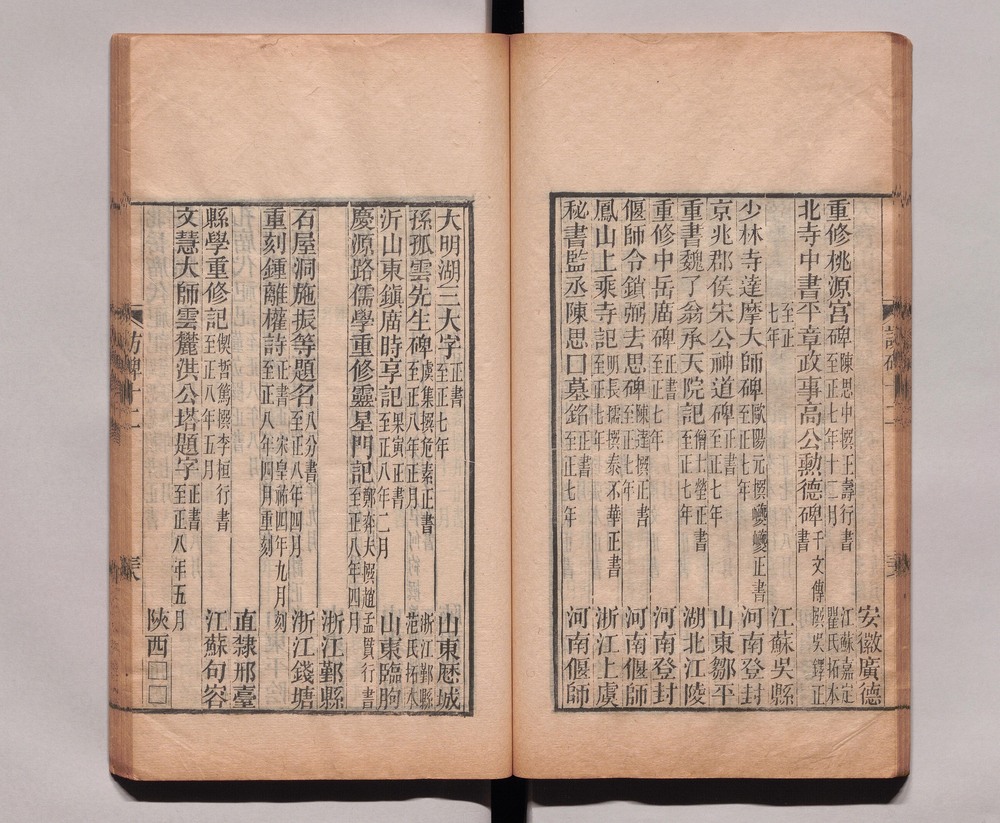 安徽廣德
重修桃源宫碑 陳思中撰王壽行書 至正七年十二月 江蘇嘉定瞿氏拓本
北寺中書平章政事高公勲德碑 干文傳撰吳鐸正書
至正七年 江蘇吳縣
少林寺達摩大師碑 歐陽元撰巙巙正書 至正七年 河南登封
京兆郡侯宋公神道碑 正書 至正七年 山東鄒平
重書魏了翁承天院記 僧士瑩正書 至正七年 湖北江陵
重修中岳廟碑 正書 至正七年 河南登封
偃師令鎖弼去思碑 陳達撰正書 至正七年 河南偃師
鳳山上乘寺記 明長孺撰泰不華正書 至正七年 浙江上虞
秘書監丞陳思口墓銘 正書 至正七年 河南偃師
大明湖三大字 正書 至正七年 山東歷城
孫孤雲先生碑 虞集撰危素正書 至正八年正月 浙江鄞縣范氏拓本
沂山東鎮廟時享記 果寅正書 至正八年二月 山東臨朐
慶源路儒學重修靈星門記 鄭奕夫撰趙孟貫行書 至正八年四月
浙江鄞縣
石屋洞施振等題名 八分書 至正八年四月 浙江錢塘
重刻鍾離權詩 正書 宋皇祐四年九月刻 至正八年四月重刻
直隸邢臺
縣學重修記 偰哲篤撰李桓行書 至正八年五月 江蘇句容
文慧大師雲麓洪公塔題字 正書 至正八年五月 陝西□□
訪碑十二